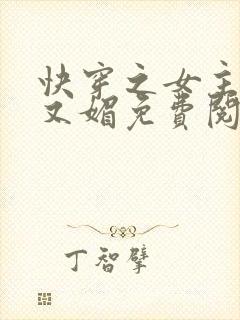 快穿之女主
又媚免费阅
丁智擘